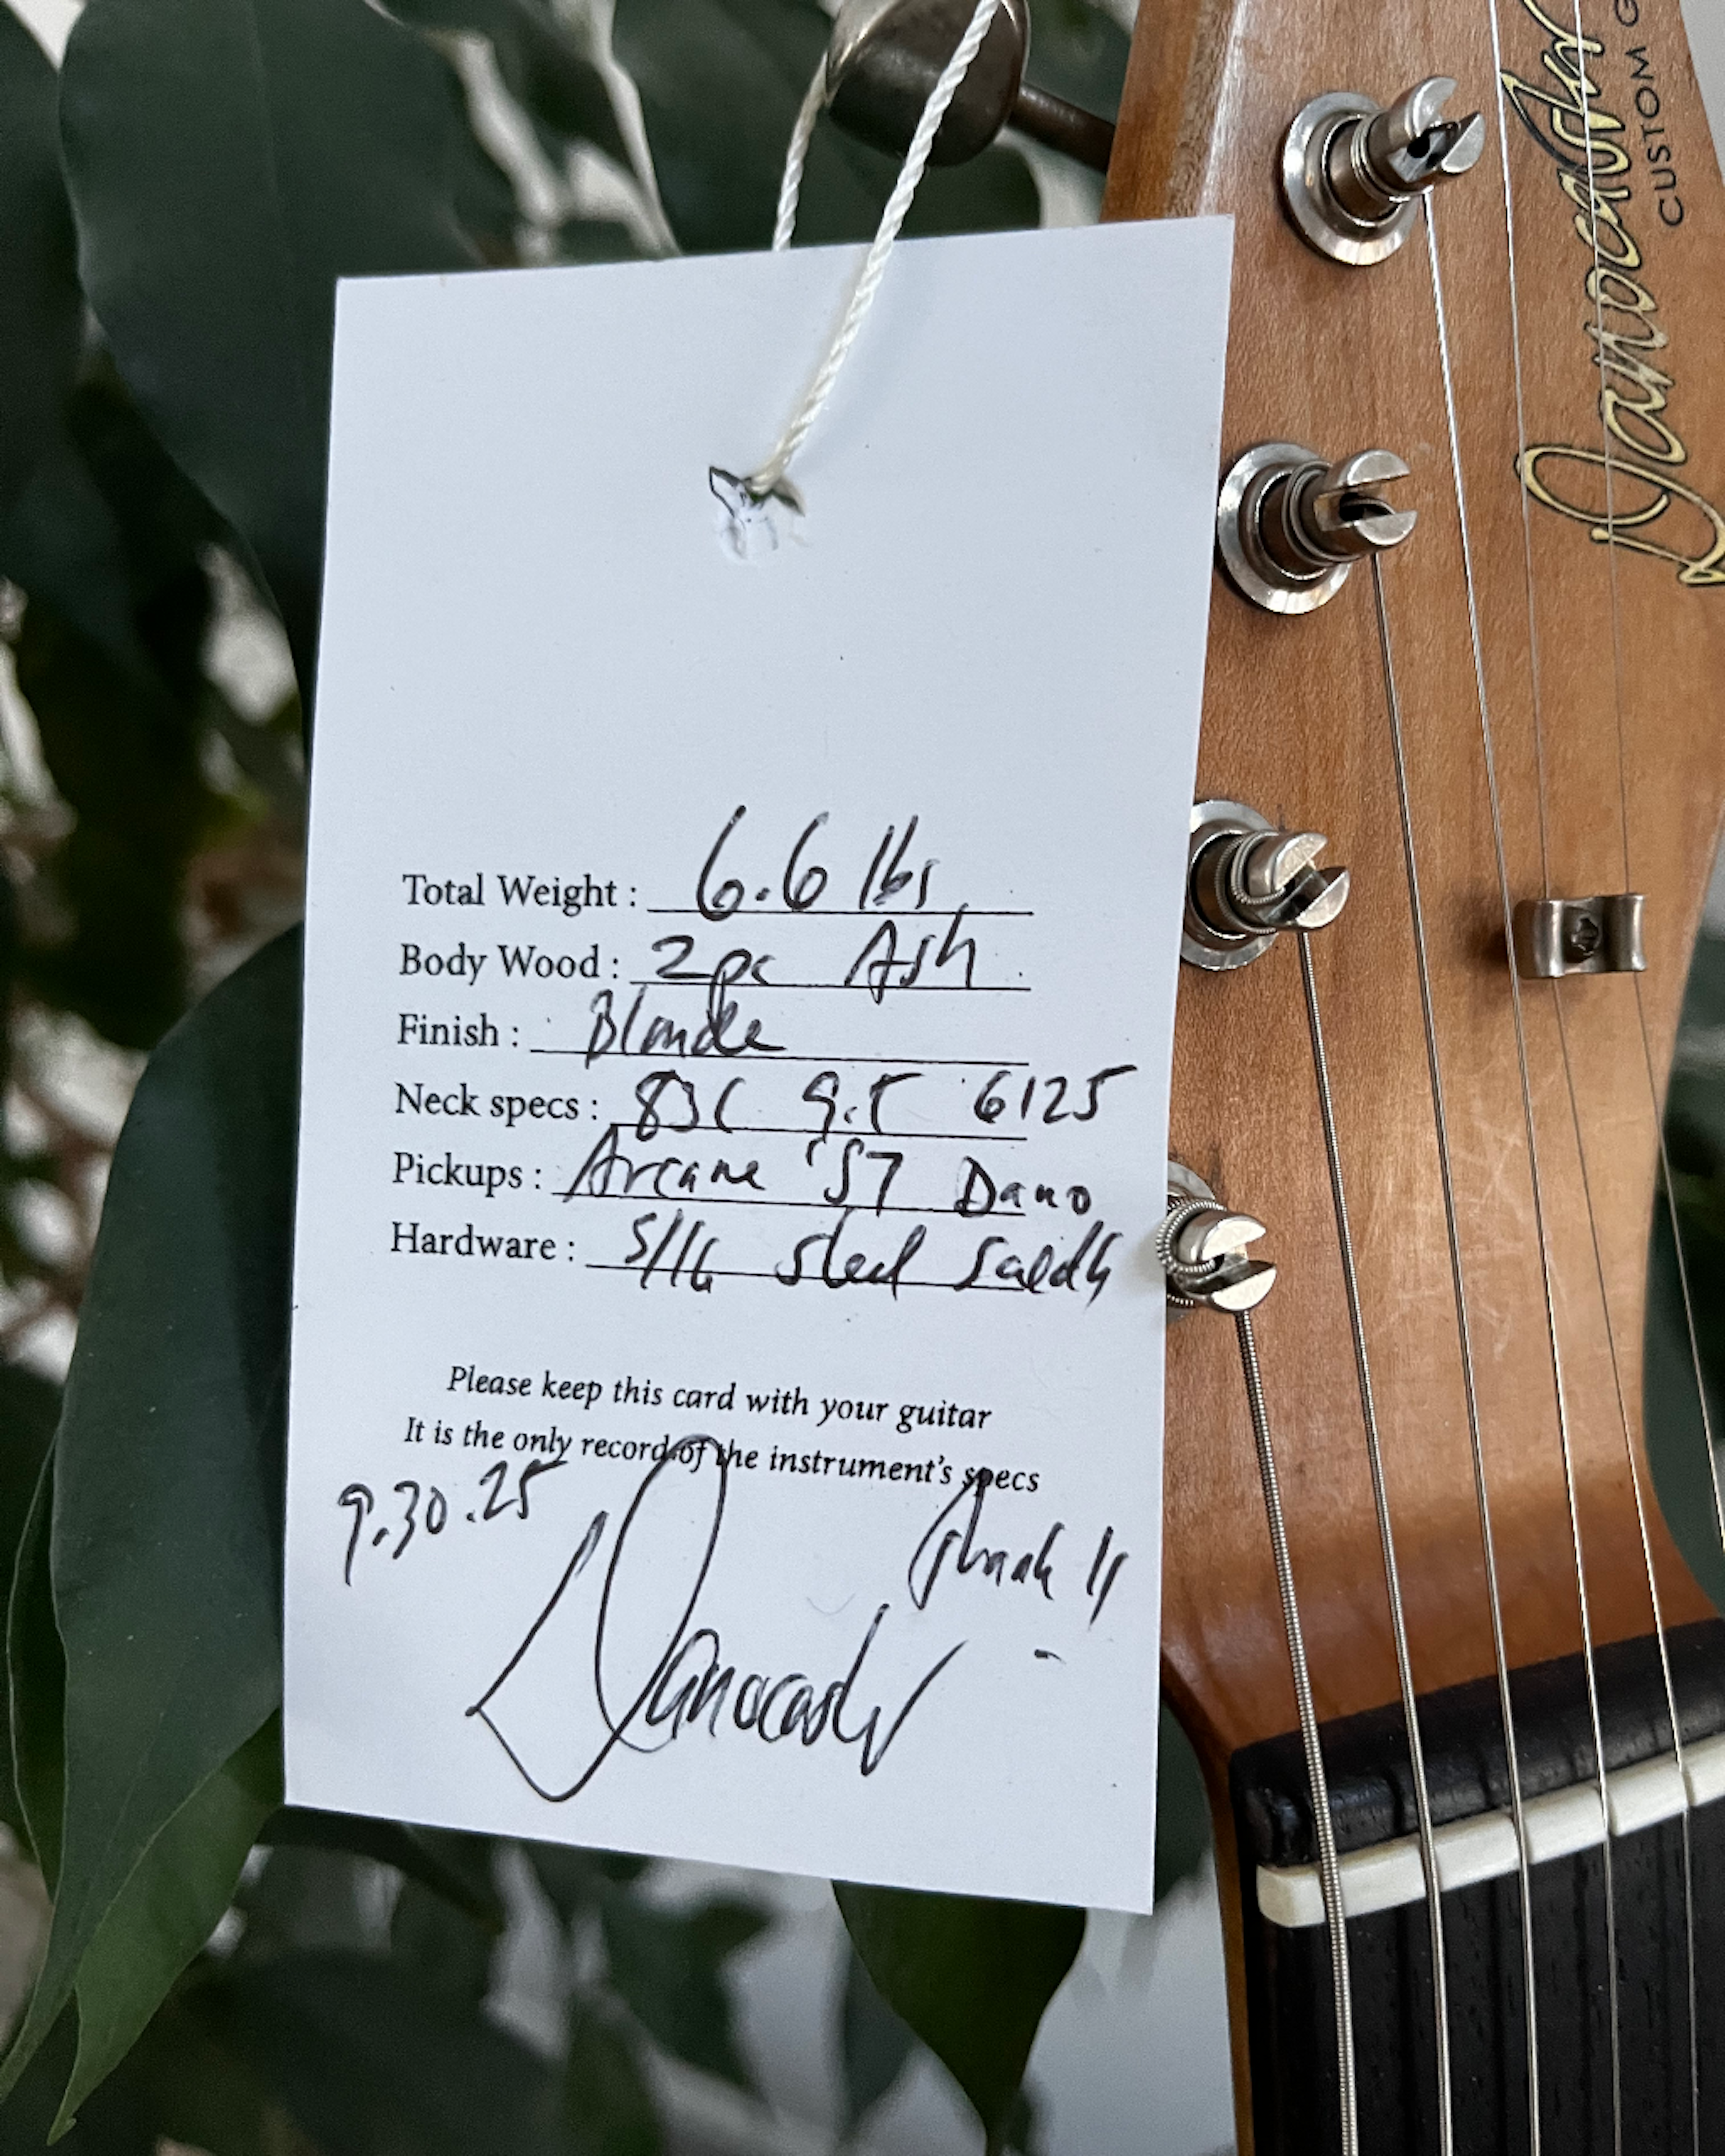 Danocaster
CUSTOM G
Total Weight : 6.6 lbs
Body Wood : 2pc Ash
Finish : Blonde
Neck specs : 83C 9.5 6125
Pickups : Arcane '57 Dano
Hardware : 5/16 steel saddles
Please keep this card with your guitar
It is the only record of the instrument's specs
9.30.25
Danocaster